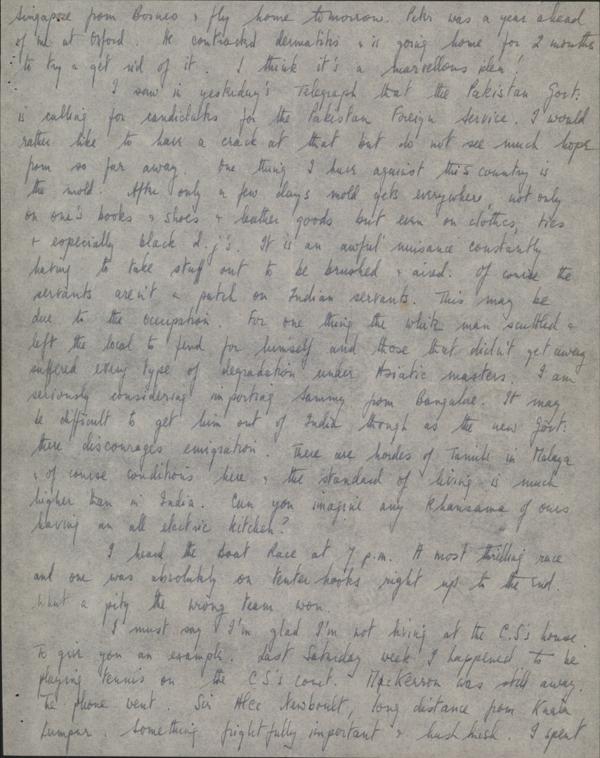 Singapore from Borneo & fly home tomorrow. Peter was a year ahead
of me at Oxford. He contracted dermatitis & is going home for 2 months
to try & get rid of it. I think it's a marvellous plan!
I saw in yesterday's Telegraph that the Pakistan Govt.
is calling for candidates for the Pakistan Foreign Service. I would
rather like to have a crack at that but do not see much hope
from so far away. One thing I have against this country is
the mold. After only a few days mold gets everywhere, not only
on one's books & shoes & leather goods but even on clothes, ties
& especially black d.j's. It is an awful nuisance constantly
having to take stuff out to be brushed & aired. Of course the
servants aren't a patch on Indian servants. This may be
due to the occupation. For one thing the white man scuttled &
left the local to fend for himself and those that didn't get away
suffered every type of degradation under Asiatic masters. I am
seriously considering importing Sammy from Bangalore. It may
be difficult to get him out of India though as the new Govt.
there discourages emigration. There are hordes of Tamils in Malaya
& of course conditions here & the standard of living is much
higher than in India. Can you imagine any Khansama of ours
having an all electric kitchen?
I heard the Boat Race at 7 p.m. A most thrilling race
and one was absolutely on tenter hooks right up to the end.
What a pity the wrong team won.
I must say I'm glad I'm not living at the C.S's house.
To give you an example. Last Saturday week I happened to be
playing tennis on the C.S's court. MacKerron was still away.
The phone went. Sir Alec Newboult, long distance from Kuala
Lumpur. Something frightfully important & hush hush. I spent